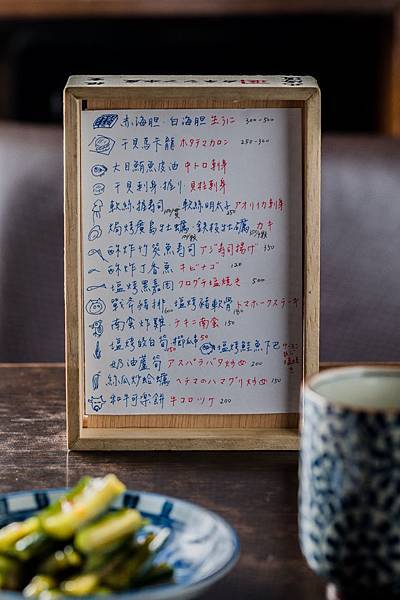 赤海胆.白海胆 生うに 300-500
干貝馬卡龍 ホタテマカロン 250-300
大目鮪魚皮油 中トロ刺身
干貝刺身.握り 貝柱刺身
軟絲.握壽司 軟絲明太子 アオリイカ刺身
焗烤廣島牡蠣 カキ
酥炸竹筴魚壽司 アジ寿司揚げ 350
酥炸丁香魚 キビナゴ 120
塩烤黑喜 塩焼き 500
戰斧豬排 塩烤豬軟骨 トマホークステーキ
南蛮炸雞 チキン南蛮 150
塩烤飫白筍 櫛瓜 塩烤鮭魚下巴
奶油蘆筍 アスパラバタ炒め 200
絲瓜炒蛤蠣 ヘチマのハマグリ炒め 150
和牛可樂餅 牛コロッケ 200